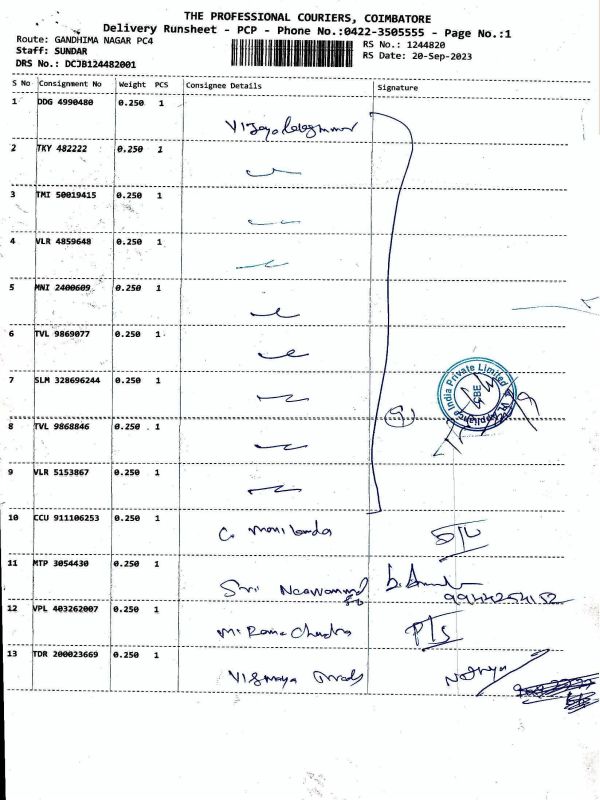 THE PROFESSIONAL COURIERS, COIMBATORE
Delivery Runsheet - PCP - Phone No.:0422-3505555 - Page No.:1
Route: GANDHIMA NAGAR PC4
RS No.: 1244820
Staff: SUNDAR
RS Date: 20-Sep-2023
DRS No.: DCJB124482001
S No Consignment No Weight PCS Consignee Details Signature
1 DDG 4990480 0.250 1
2 TKY 482222 0.250 1
3 TMI 50019415 0.250 1
4 VLR 4859648 0.250 1
5 MNI 2400609 0.250 1
6 TVL 9869077 0.250 1
7 SLM 328696244 0.250 1
Appliance India Private Limited
CBE
9
8 TVL 9868846 0.250 1
9 VLR 5153867 0.250 1
10 CCU 911106253 0.250 1
C.
11 MTP 3054430 0.250 1
Sri
9944254152
12 VPL 403262007 0.250 1
M. Rama Chandra
13 TDR 200023669 0.250 1